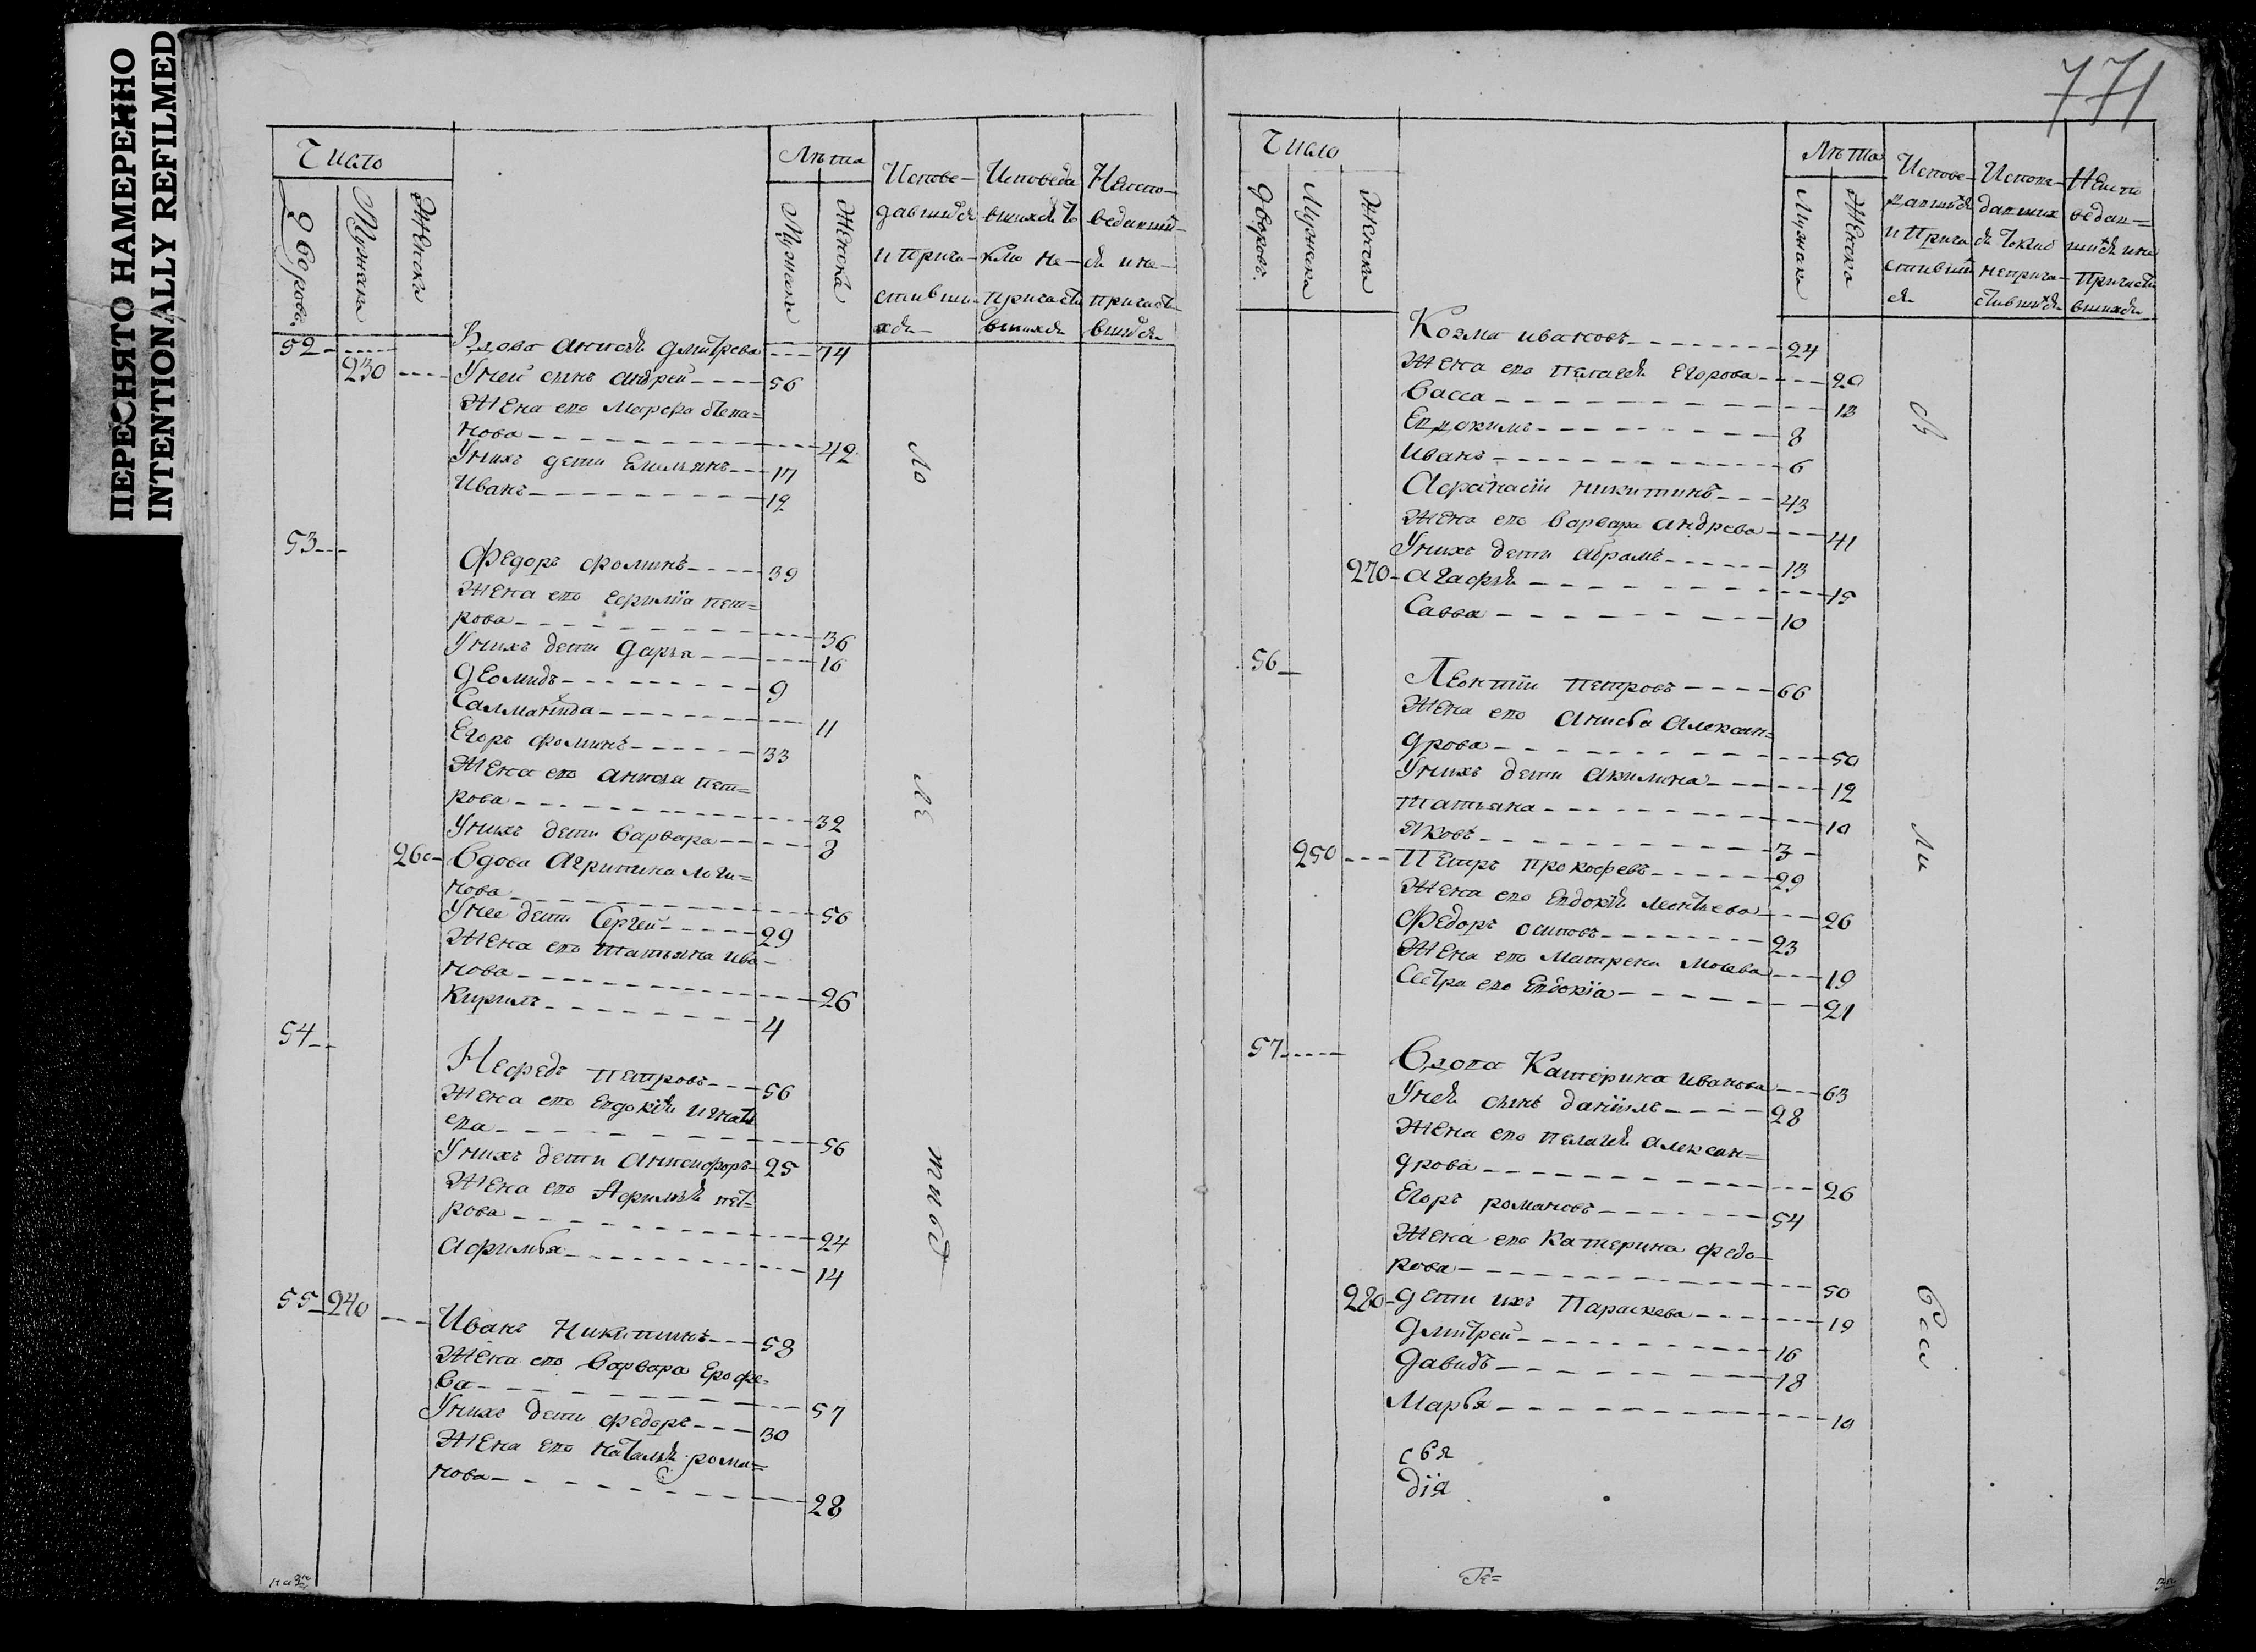 ПЕРЕСНЯТО НАМЕРЕННО
INTENTIONALLY REFILMED
Число
Дворовъ.
Мужеска
Женска
Лѣта
Мужеска
Женска
Испове-
давшихся
и прича-
стивши-
хся
Исповеда
вшихся то
кмо не-
причасти
вшихся
Неиспо-
ведавши-
ся и не-
причасти
вшихся
52 Вдова Анисья Дмитрева 74
230 Унеи сынъ Андреи 56
Жена его Марфа Степа=
нова 42
Унихъ дети Емельянъ 17
Иванъ 12
53
Федоръ Фоминъ 39
Жена его Ефимiа пет=
рова 36
Унихъ дети Дарья 16
Деомидъ 9
Саламанида 11
Егоръ Фоминъ 33
Жена его Анисья пет=
рова 32
Унихъ дети Варвара 8
260 Вдова Агрипина Логи=
нова 56
Унее дети Сергеи 29
Жена его Татьяна ива-
нова 26
Кирилъ 4
54
Нефедъ Петровъ 56
Жена его Евдокiя игнать
ева 56
Унихъ дети Анисифоръ 25
Жена его Афимья пет=
рова 24
Афимья 14
55 240 Иванъ Никитинъ 58
Жена его Варвара Ерофе=
ва 57
Унихъ дети Федоръ 30
Жена его Наталья рома=
нова 28
771
Число
Дворовъ.
Мужеска
Женска
Лѣта
Мужеска
Женска
Испове-
давшихся
и прича
стивших
ся
Испове-
давших
ся токмо
неприча-
стившихся
Неиспо
ведав=
шихся и не
причасти
вшихся
Козма ивановъ 24
Жена его Пелагея Егорова 20
Васса 13
Евдокимъ 8
Иванъ 6
Афанасiи никитинъ 43
Жена его Варвара Андрева 41
Унихъ дети Абрамъ 13
270 Агафья 15
Савва 10
56
Леонтiи Петровъ 66
Жена его Анисья Алексан=
дрова 50
Унихъ дети Акилина 12
Татьяна 10
Яковъ 3
250 Петръ Прокофевъ 29
Жена его Евдокiя Леонтьева 26
Федоръ осиповъ 23
Жена его Матрена Мосева 19
Сестра его Евдокiа 21
57
Вдова Катерина Иванова 63
Унея сынъ данiилъ 28
Жена его Пелагея Алексан=
дрова 26
Егоръ романовъ 54
Жена его Катерина федо-
рова 50
280 Дети ихъ Параскева 19
Дмитреи 16
Давидъ 18
Марья 10
свя
дiя